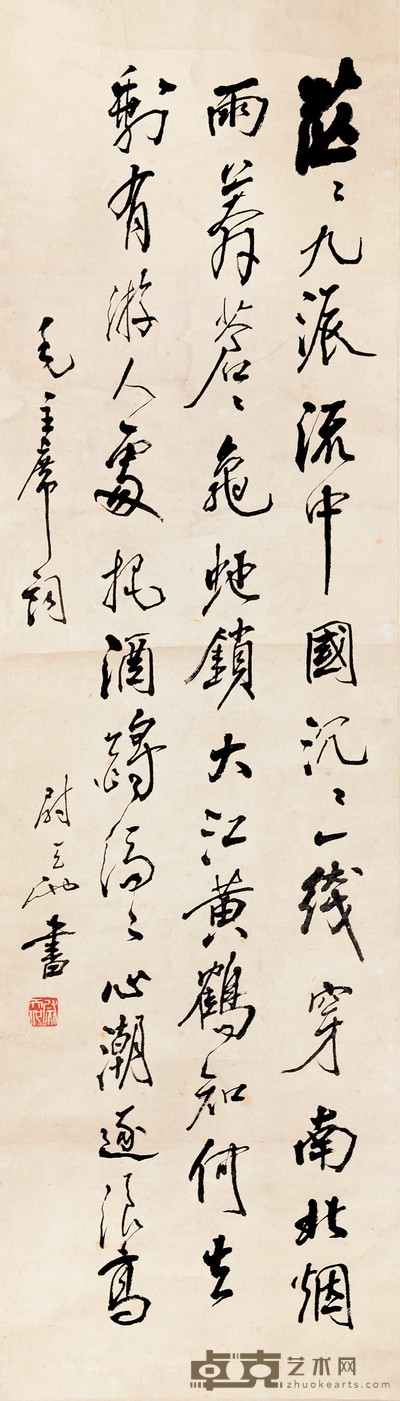 茫〻九派流中國沉〻一綫穿南北烟
雨莽蒼〻龜蛇鎖大江黄鶴知何去
剩有游人處把酒酹滔〻心潮逐浪高
毛主席詞
尉天池書
卓克艺术网
zhuokearts.com